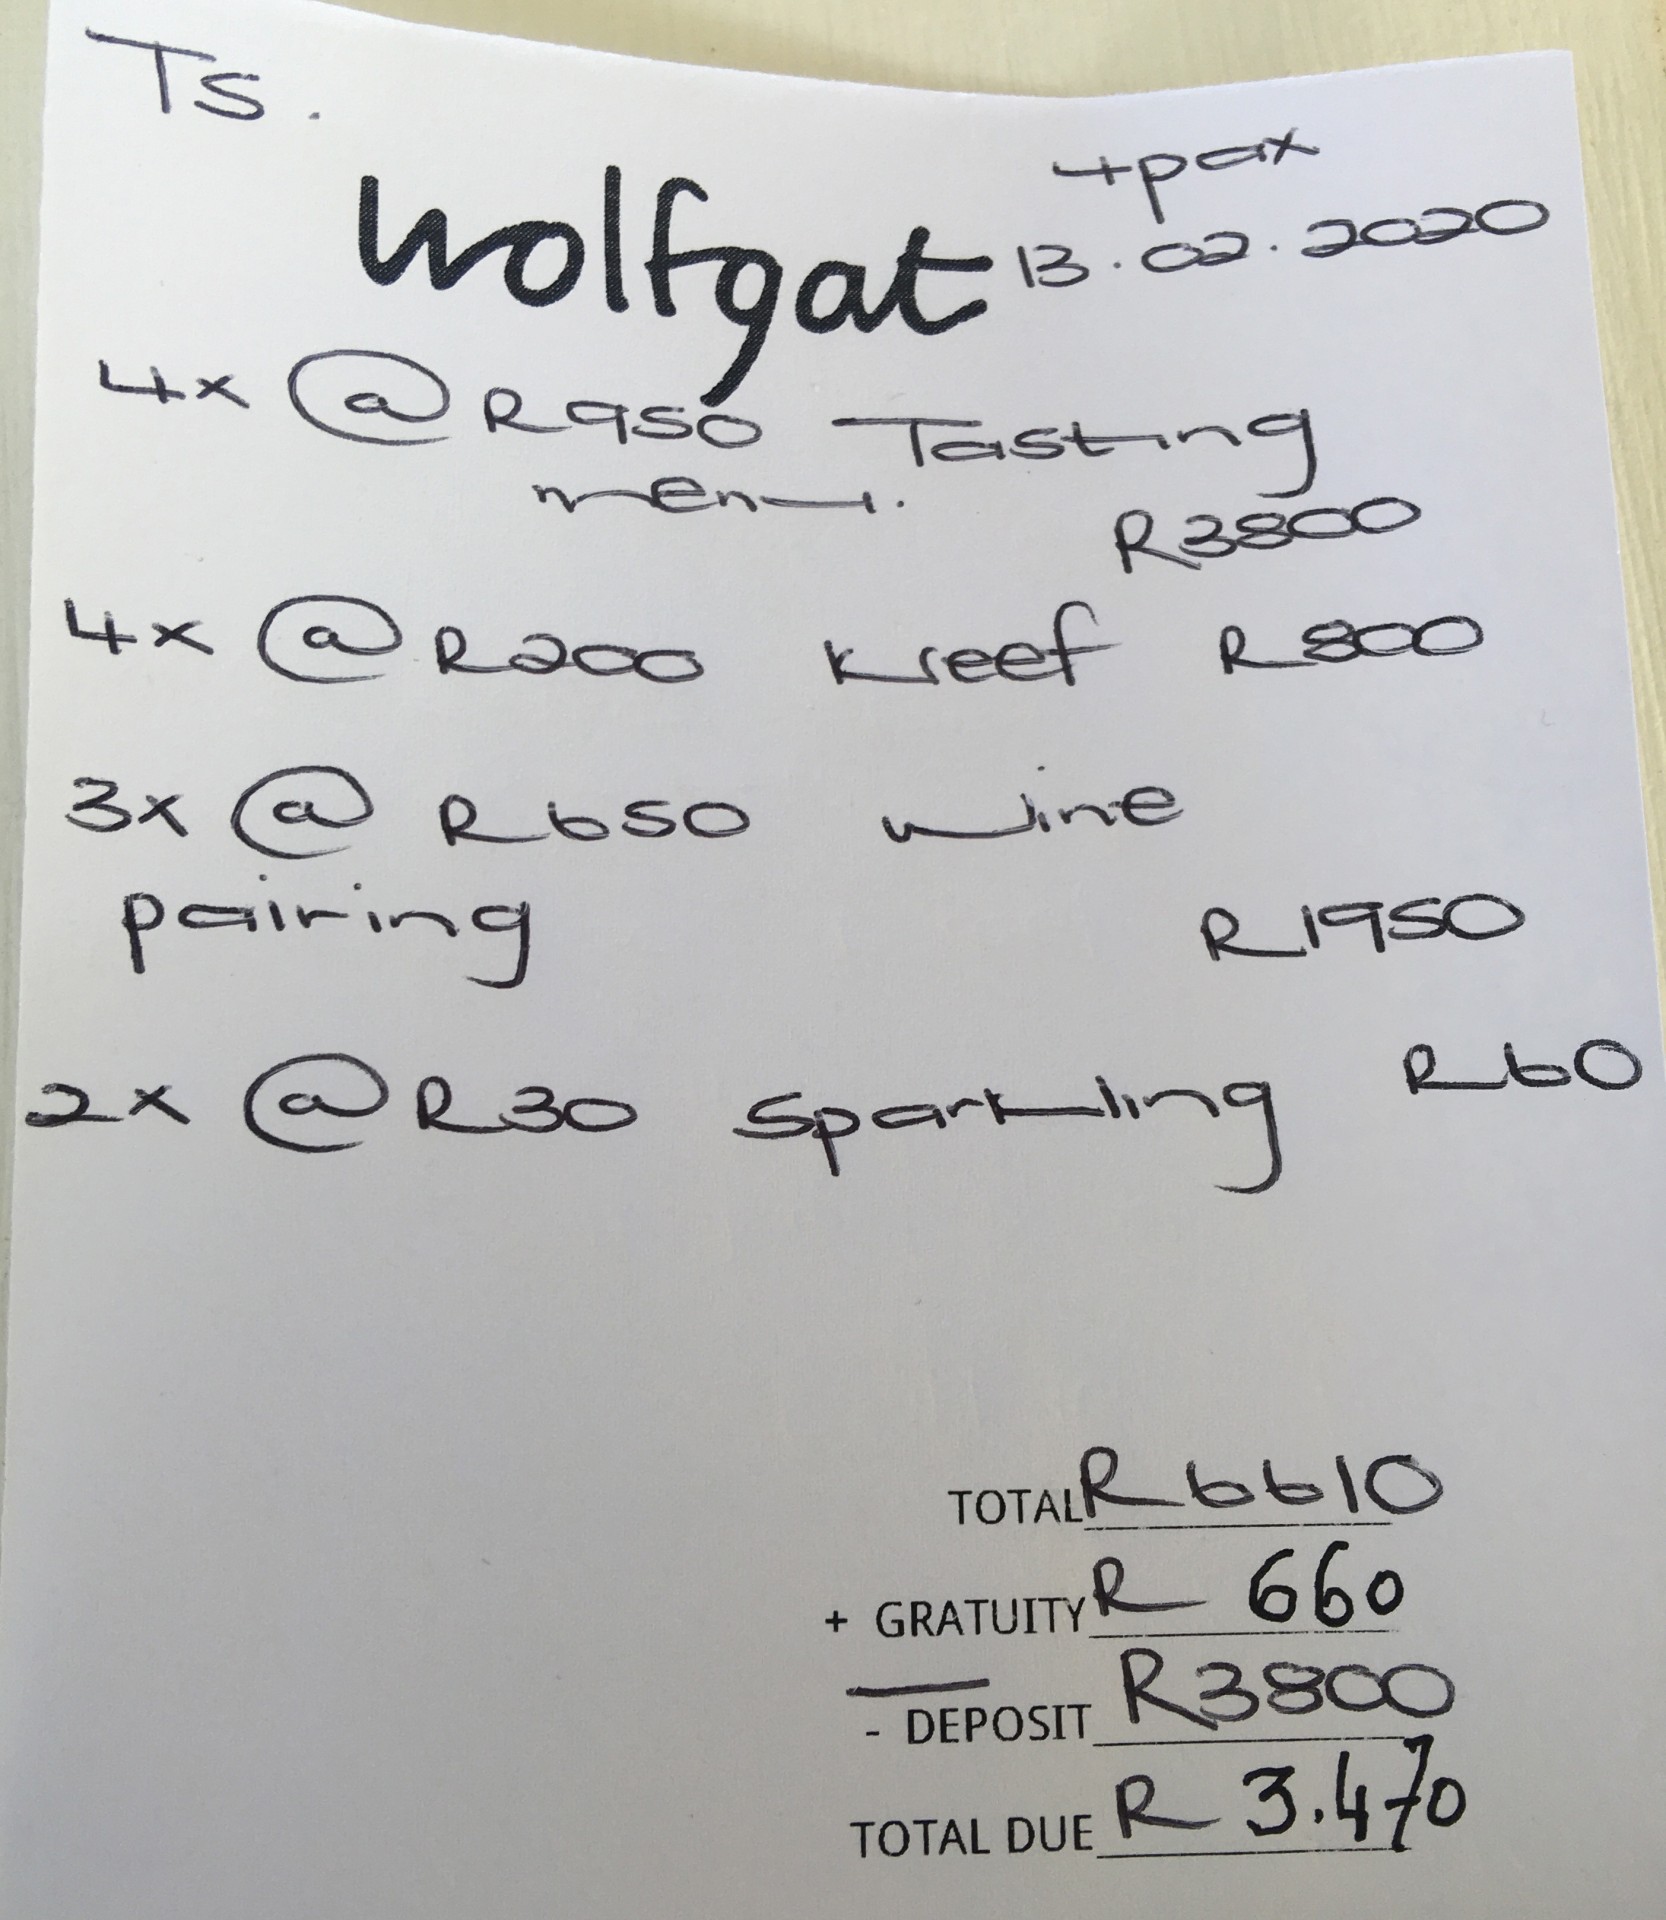 Ts.
4pax
wolfgat 13.02.2020
4x @ R950 Tasting
menu.
R3800
4x @ R200 kreef R800
3x @ R650 wine
pairing R1950
2x @ R30 sparkling R60
TOTAL R6610
+ GRATUITY R 660
- DEPOSIT R3800
TOTAL DUE R 3.470